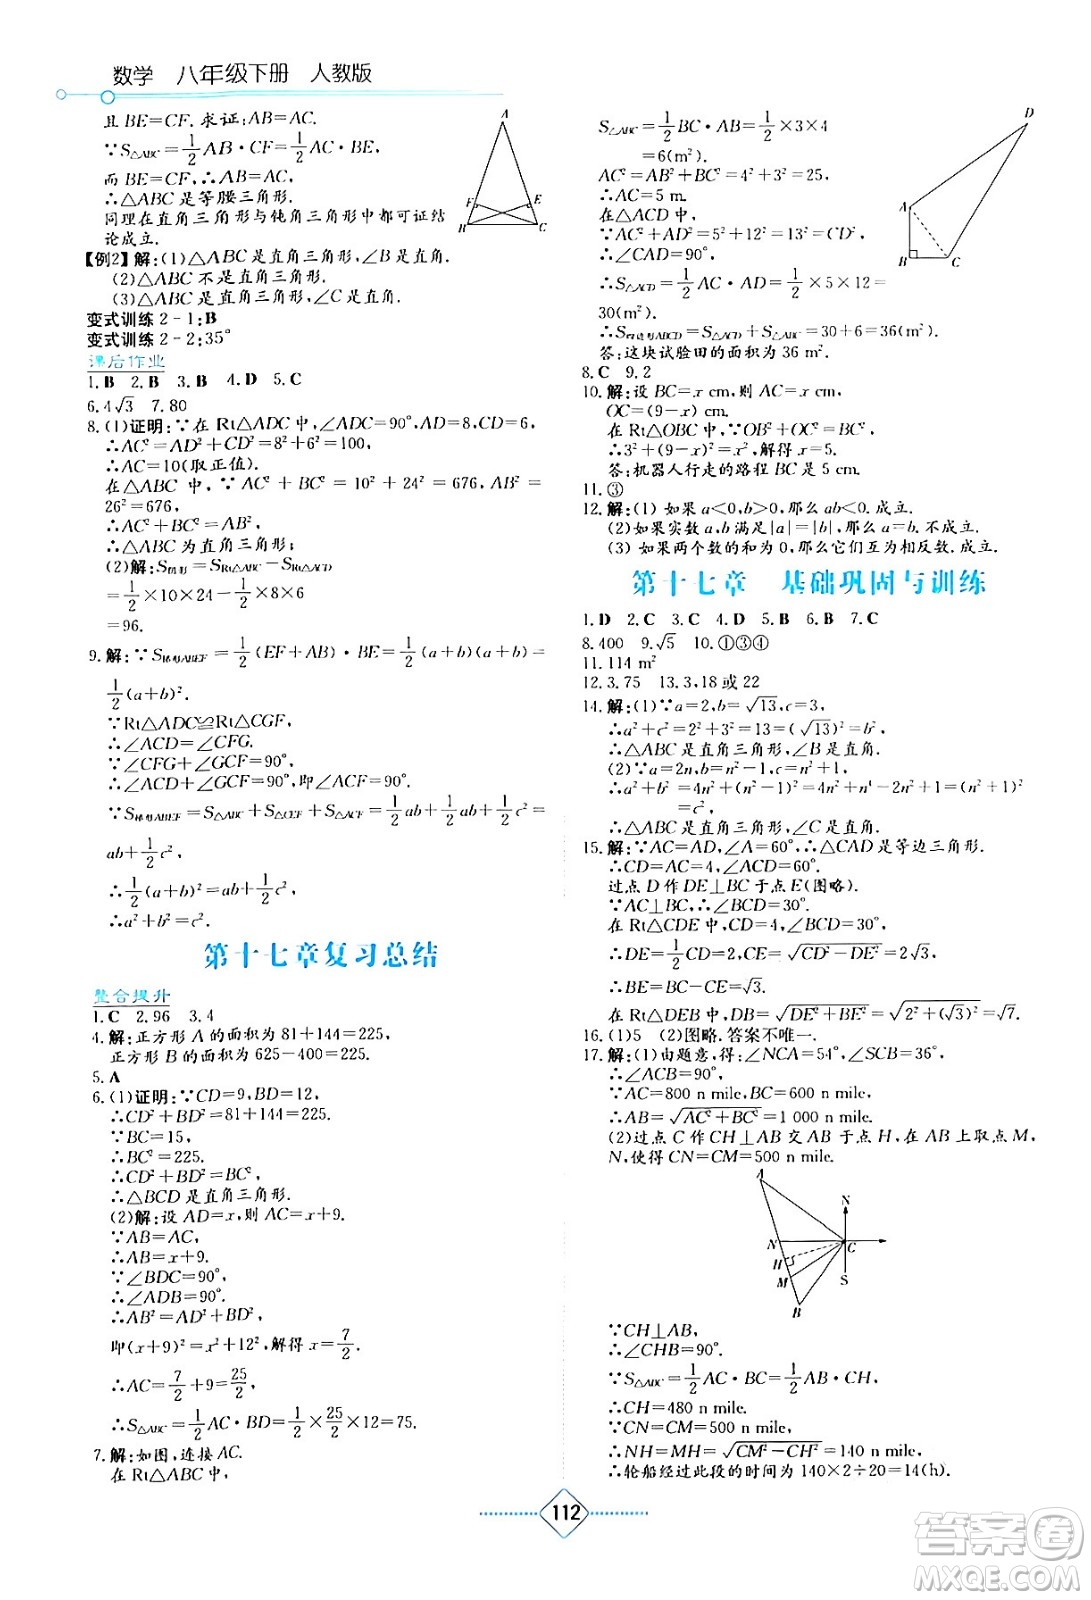 数学 八年级下册 人教版
且 BE=CF. 求证:AB=AC.
∵S△ABC=1/2 AB·CF=1/2 AC·BE,
而 BE=CF,∴AB=AC.
∴△ABC 是等腰三角形.
同理在直角三角形与钝角三角形中都可证结
论成立.
【例2】解:(1)△ABC 是直角三角形,∠B 是直角.
(2)△ABC 不是直角三角形.
(3)△ABC 是直角三角形,∠C 是直角.
变式训练 2-1:B
变式训练 2-2:35°
课后作业
1. B 2. B 3. B 4. D 5. C
6. 4√3 7. 80
8. (1)证明:∵在 Rt△ADC 中,∠ADC=90°,AD=8,CD=6,
∴AC²=AD²+CD²=8²+6²=100,
∴AC=10(取正值).
在△ABC 中,∵AC²+BC²=10²+24²=676,AB²=
26²=676,
∴AC²+BC²=AB²,
∴△ABC 为直角三角形;
(2)解:S阴影=SRt△ABC-SRt△ACD
=1/2×10×24-1/2×8×6
=96.
9. 解:∵S梯形ABEF=1/2(EF+AB)·BE=1/2(a+b)·(a+b)=
1/2(a+b)².
∵Rt△ADC≌Rt△CGF,
∴∠ACD=∠CFG.
∵∠CFG+∠GCF=90°,
∴∠ACD+∠GCF=90°,即∠ACF=90°.
∵S梯形ABEF=S△ABC+S△CEF+S△ACF=1/2 ab+1/2 ab+1/2 c²=
ab+1/2 c²,
∴1/2(a+b)²=ab+1/2 c²,
∴a²+b²=c².
第十七章复习总结
整合提升
1. C 2. 96 3. 4
4. 解:正方形 A 的面积为 81+144=225,
正方形 B 的面积为 625-400=225.
5. A
6. (1)证明:∵CD=9,BD=12,
∴CD²+BD²=81+144=225.
∵BC=15,
∴BC²=225.
∴CD²+BD²=BC².
∴△BCD 是直角三角形.
(2)解:设 AD=x,则 AC=x+9.
∵AB=AC,
∴AB=x+9.
∵∠BDC=90°,
∴∠ADB=90°.
∴AB²=AD²+BD²,
即(x+9)²=x²+12²,解得 x=7/2.
∴AC=7/2+9=25/2.
∴S△ABC=1/2 AC·BD=1/2×25/2×12=75.
7. 解:如图,连接 AC.
在 Rt△ABC 中,
A
F
E
B
C
S△ABC=1/2 BC·AB=1/2×3×4
=6(m²).
AC²=AB²+BC²=4²+3²=25,
∴AC=5 m.
在△ACD 中,
∵AD²=AC²+CD²,
∴∠CAD=90°.
∴S△ACD=1/2 AC·AD=1/2×5×12=
30(m²).
∴S四边形ABCD=S△ACD+S△ABC=30+6=36(m²).
答:这块试验田的面积为 36 m².
D
A
B
C
8. C 9. 2
10. 解:设 BC=x cm,则 AC=x cm,
OC=(9-x) cm.
在 Rt△OBC 中,∵OB²+OC²=BC²,
∴3²+(9-x)²=x²,解得 x=5.
答:机器人行走的路程 BC 是 5 cm.
11. ③
12. 解:(1) 如果 a<0,b>0,那么 ab<0. 成立.
(2)如果实数 a,b 满足|a|=|b|,那么 a=b. 不成立.
(3) 如果两个数的和为 0,那么它们互为相反数. 成立.
第十七章 基础巩固与训练
1. D 2. C 3. C 4. D 5. B 6. B 7. C
8. 400 9. √5 10. ①③④
11. 114 m²
12. 3.75 13. 3,18 或 22
14. 解:(1)∵a=2,b=√13,c=3,
∴a²+c²=2²+3²=13=(√13)²=b²,
∴△ABC 是直角三角形,∠B 是直角.
(2)∵a=2n,b=n²-1,c=n²+1,
∴a²+b²=4n²+(n²-1)²=4n²+n⁴-2n²+1=(n²+1)²
=c²,
∴△ABC 是直角三角形.
15. 解:∵AC=AD,∠A=60°,∴△CAD 是等边三角形.
∴CD=AC=4,∠ACD=60°.
过点 D 作 DE⊥BC 于点 E(图略).
∵AC⊥BC,∴∠DCE=30°.
在 Rt△CDE 中,CD=4,∠DCE=30°,
∴DE=1/2 CD=2,CE=√(CD²-DE²)=2√3.
∴BE=BC-CE=√3.
在 Rt△DEB 中,DB=√(DE²+BE²)=√(2²+(√3)²)=√7.
16. (1)5 (2)图略. 答案不唯一.
17. 解:(1)由题意,得∠NCA=54°,∠SCB=36°.
∴∠ACB=90°.
∵AC=800 n mile,BC=600 n mile,
∴AB=√(AC²+BC²)=1 000 n mile.
(2)过点 C 作 CH⊥AB 交 AB 于点 H,在 AB 上取点 M,
N,使得 CN=CM=500 n mile.
A
N
N
C
H
M
S
B
∵CH⊥AB,
∴∠CHB=90°.
∵S△ABC=1/2 AC·BC=1/2 AB·CH,
∴CH=480 n mile.
∵CN=CM=500 n mile,
∴NH=MH=√(CM²-CH²)=140 n mile.
∴轮船经过此段的时间为 140×2÷20=14(h).
112
答案圈
MXQE.COM